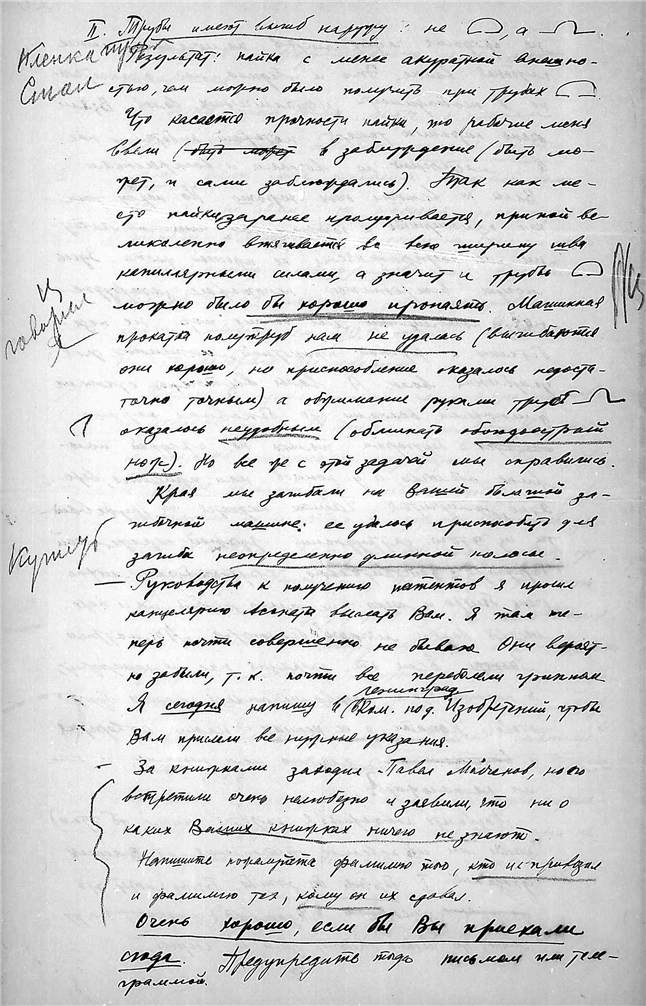 II. Трубы имеют выгиб наружу: не , а .
Пленка
Результат: пайка с менее акуратной внешно-
стью, чем можно было получить при трубах
Что касается прочности пайки, то рабочие меня
ввели (быть может в заблуждение (быть мо-
жет, и сами заблуждались). Так как ме-
сто пайки заранее пролуживается, припой ве-
ликолепно втягивается во всю ширину шва
капилярными силами, а значит и трубы
можно было бы хорошо пропаять. Машинная
говорил
прокатка полутруб нам не удалась (выгибаются
они хорошо, но приспособление оказалось недоста-
точно точным) а обжимание руками труб
оказалось неудобным (обжимать обоюдоострый
нож). Но все же с этой задачей мы справились.
Края мы загибали на Вашей большой за-
гибочной машине: ее удалось приспособить для
загиба неопределенно длинной полосы.
— Руководства к получению патентов я просил
канцелярию выслать Вам. Я там те-
перь почти совершенно не бываю. Они вероят-
но забыли, т.к. почти все переболели гриппом
Я сегодня напишу в Ленинград
Ком. по д. Изобретений, чтобы
Вам прислали все нужные указания.
– За книжками заходил Павел, но его
встретили очень нелюбезно и заявили, что ни о
каких Ваших книжках ничего не знают.
Напишите пожалуйста фамилию того, кто их привозил
и фамилию тех, кому он их сдавал.
Очень хорошо, если бы Вы приехали
сюда. Предупредите тогда письмом или теле-
граммой.